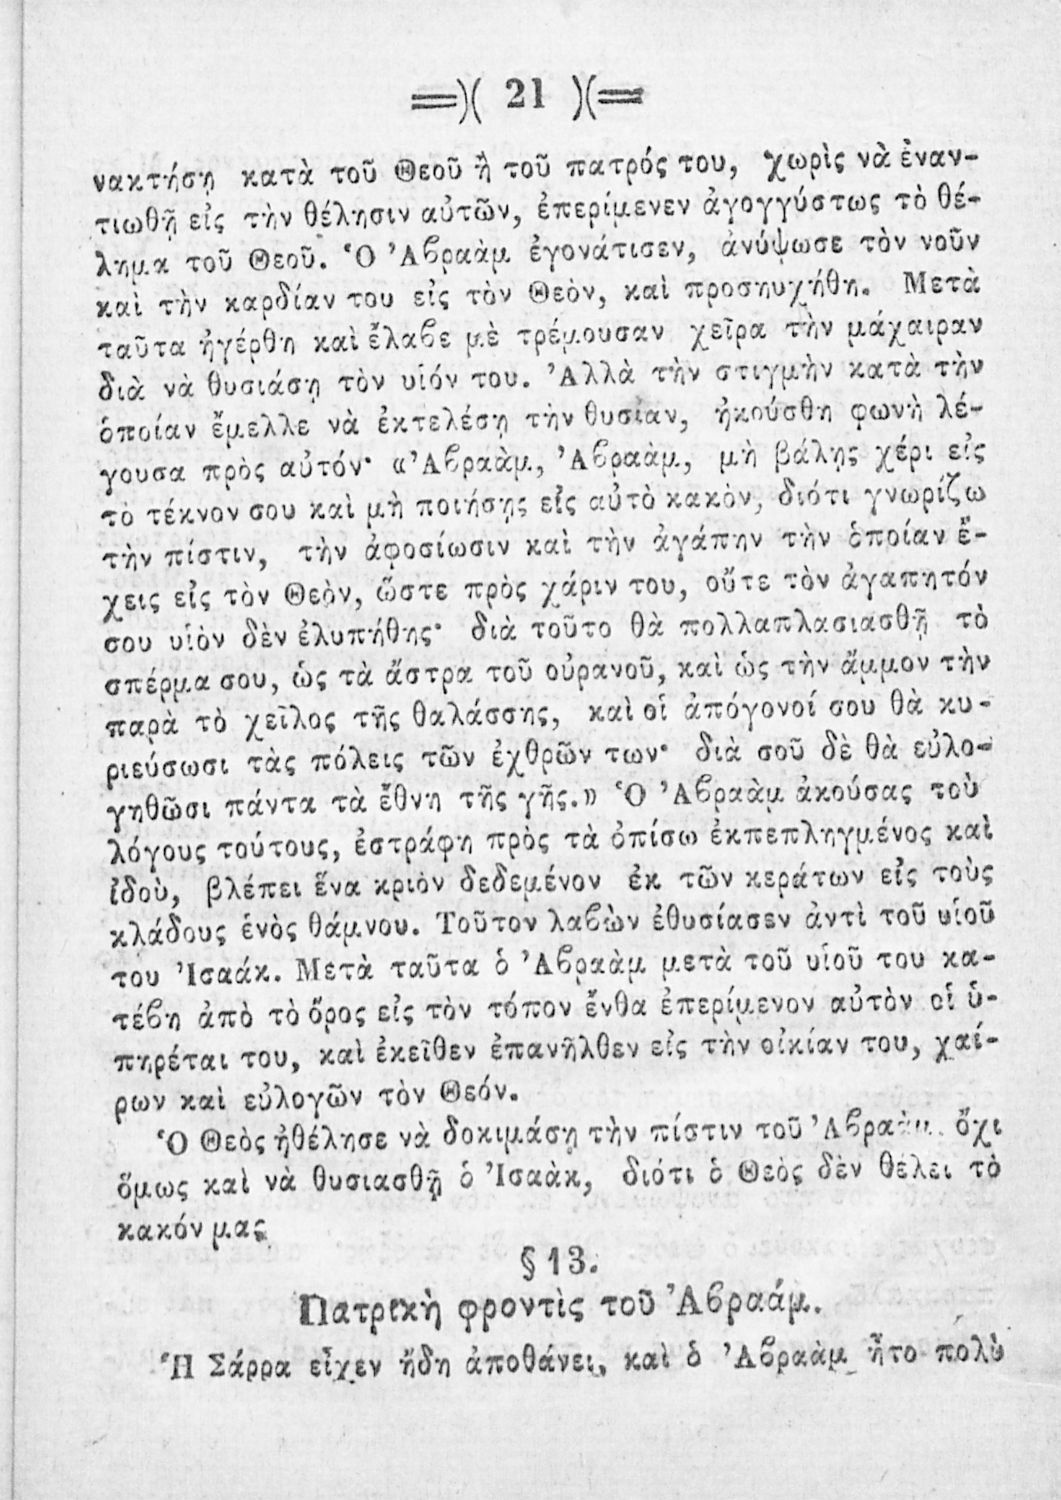 =)( 21 )(=
νακτήσῃ κατὰ τοῦ Θεοῦ ἢ τοῦ πατρός του, χωρὶς νὰ ἐναν-
τιωθῇ εἰς τὴν θέλησιν αὐτῶν, ἐπερίμενεν ἀγογγύστως τὸ θέ-
λημα τοῦ Θεοῦ. Ὁ Ἀβραὰμ ἐγονάτισεν, ἀνύψωσε τὸν νοῦν
καὶ τὴν καρδίαν του εἰς τὸν Θεὸν, καὶ προσηυχήθη. Μετὰ
ταῦτα ἠγέρθη καὶ ἔλαβε μὲ τρέμουσαν χεῖρα τὴν μάχαιραν
διὰ νὰ θυσιάσῃ τὸν υἱόν του. Ἀλλὰ τὴν στιγμὴν κατὰ τὴν
ὁποίαν ἔμελλε νὰ ἐκτελέσῃ τὴν θυσίαν, ἠκούσθη φωνὴ λέ-
γουσα πρὸς αὐτόν· «Ἀβραὰμ, Ἀβραὰμ, μὴ βάλῃς χέρι εἰς
τὸ τέκνον σου καὶ μὴ ποιήσῃς εἰς αὐτὸ κακὸν, διότι γνωρίζω
τὴν πίστιν, τὴν ἀφοσίωσιν καὶ τὴν ἀγάπην τὴν ὁποίαν ἔ-
χεις εἰς τὸν Θεὸν, ὥστε πρὸς χάριν του, οὔτε τὸν ἀγαπητόν
σου υἱὸν δὲν ἐλυπήθης· διὰ τοῦτο θὰ πολλαπλασιασθῇ τὸ
σπέρμα σου, ὡς τὰ ἄστρα τοῦ οὐρανοῦ, καὶ ὡς τὴν ἄμμον τὴν
παρὰ τὸ χεῖλος τῆς θαλάσσης, καὶ οἱ ἀπόγονοί σου θὰ κυ-
ριεύσωσι τὰς πόλεις τῶν ἐχθρῶν των· διὰ σοῦ δὲ θὰ εὐλο-
γηθῶσι πάντα τὰ ἔθνη τῆς γῆς.» Ὁ Ἀβραὰμ ἀκούσας τοὺ
λόγους τούτους, ἐστράφη πρὸς τὰ ὀπίσω ἐκπεπληγμένος καὶ
ἰδοὺ, βλέπει ἕνα κριὸν δεδεμένον ἐκ τῶν κεράτων εἰς τοὺς
κλάδους ἑνὸς θάμνου. Τοῦτον λαβὼν ἐθυσίασεν ἀντὶ τοῦ υἱοῦ
του Ἰσαάκ. Μετὰ ταῦτα ὁ Ἀβραὰμ μετὰ τοῦ υἱοῦ του κα-
τέβη ἀπὸ τὸ ὄρος εἰς τὸν τόπον ἔνθα ἐπερίμενον αὐτὸν οἱ ὑ-
πηρέται του, καὶ ἐκεῖθεν ἐπανῆλθεν εἰς τὴν οἰκίαν του, χαί-
ρων καὶ εὐλογῶν τὸν Θεόν.
Ὁ Θεὸς ἠθέλησε νὰ δοκιμάσῃ τὴν πίστιν τοῦ Ἀβραὰμ ὄχι
ὅμως καὶ νὰ θυσιασθῇ ὁ Ἰσαὰκ, διότι ὁ Θεὸς δὲν θέλει τὸ
κακόν μας.
§ 13.
Πατρικὴ φροντὶς τοῦ Ἀβραάμ.
Ἡ Σάρρα εἶχεν ἤδη ἀποθάνει, καὶ ὁ Ἀβραὰμ ἦτο πολὺ